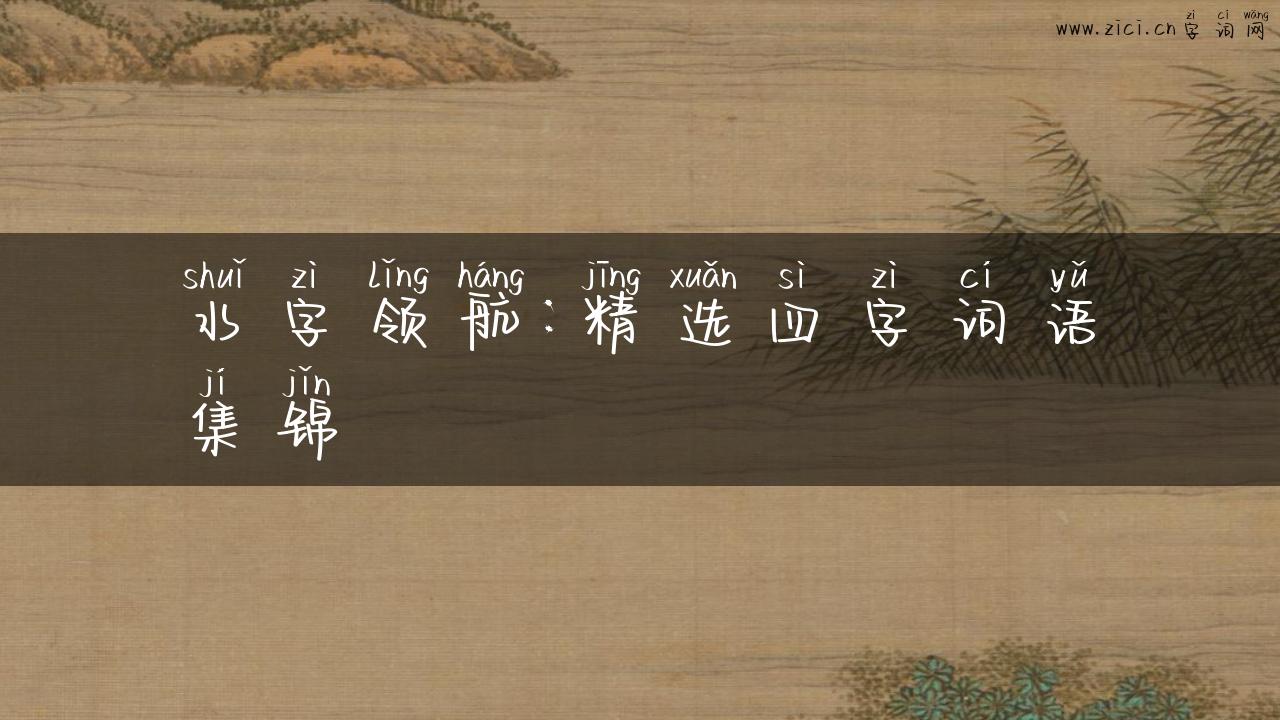 zì cí wǎng
www.zici.cn 字词网
shuǐ zì lǐng háng jīng xuǎn sì zì cí yǔ
水字领航:精选四字词语
jí jǐn
集锦